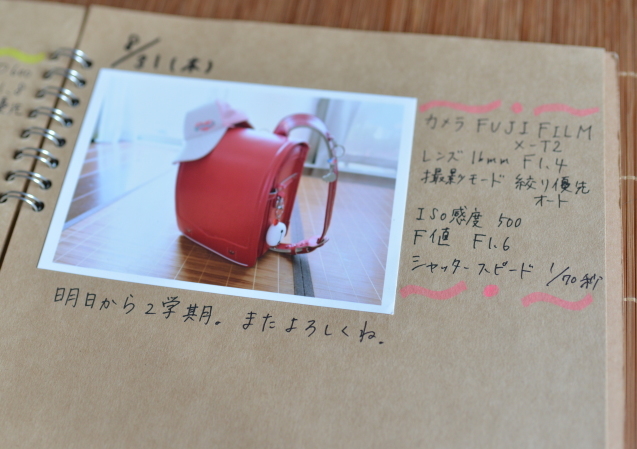 8/31(木)
カメラ FUJI FILM
X-T2
レンズ 16mm F1.4
撮影モード 絞り優先
オート
ISO感度 500
F値 F1.6
シャッタースピード 1/70秒
明日から2学期。またよろしくね。